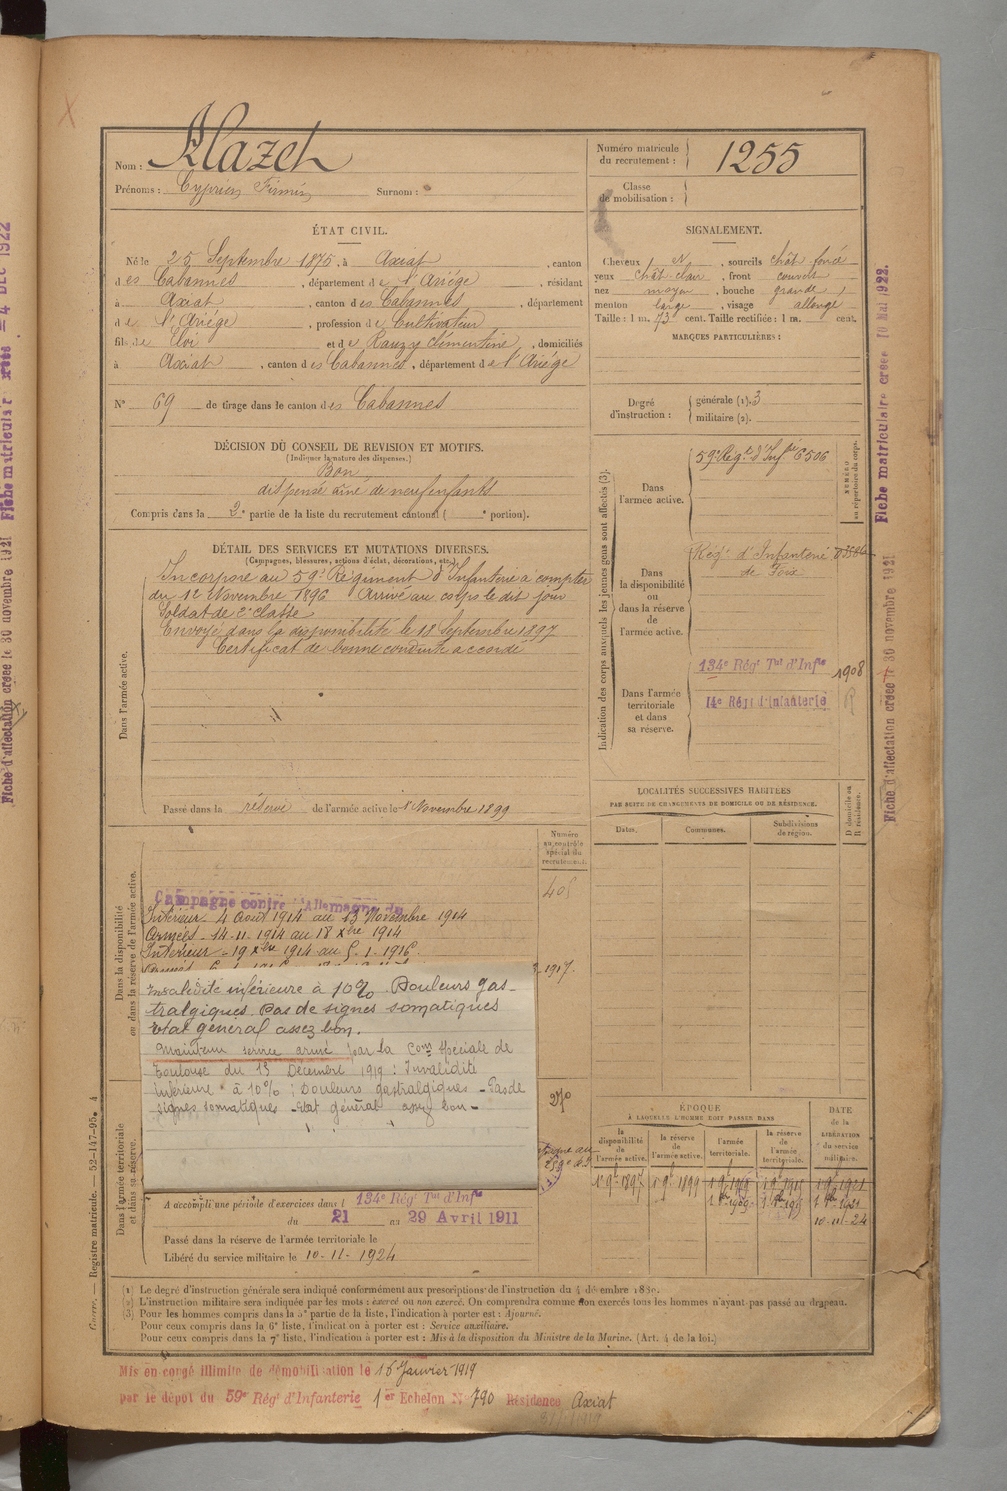 Nom : Mazet
Prénoms : Cyprien Firmin Surnom :
Numéro matricule du recrutement : 1255
Classe de mobilisation :
ÉTAT CIVIL.
Né le 25 Septembre 1875, à Axiat, canton
des Cabannes, département de l'Ariége, résidant
à Axiat, canton des Cabannes, département
de l'Ariége, profession de Cultivateur
fils de Eloi et de Rauzy Clémentine, domiciliés
à Axiat, canton des Cabannes, département de l'Ariége
N° 69 de tirage dans le canton des Cabannes
SIGNALEMENT.
Cheveux N, sourcils chât foncé
yeux chât clair, front couvert
nez moyen, bouche grande,
menton large, visage allongé
Taille : 1 m. 73 cent. Taille rectifiée : 1 m. cent.
MARQUES PARTICULIÈRES :
Degré d'instruction : générale (1). 3
militaire (2).
DÉCISION DU CONSEIL DE REVISION ET MOTIFS.
(Indiquer la nature des dispenses.)
Bon
dispensé aîné de neuf enfants
Compris dans la 2e partie de la liste du recrutement cantonal ( e portion).
DÉTAIL DES SERVICES ET MUTATIONS DIVERSES.
(Campagnes, blessures, actions d'éclat, décorations, etc.)
Dans l'armée active.
Incorporé au 59e Régiment d'Infanterie à compter
du 12 Novembre 1896 Arrivé au corps le dit jour
Soldat de 2e classe
Envoyé dans la disponibilité le 18 Septembre 1897
Certificat de bonne conduite accordé
Passé dans la réserve de l'armée active le 1er Novembre 1899
Indication des corps auxquels les jeunes gens sont affectés (3).
NUMÉRO au répertoire du corps.
Dans l'armée active.
59e Régt d'Infie 6506
Dans la disponibilité ou dans la réserve de l'armée active.
Régt d'Infanterie
de Foix
Dans l'armée territoriale et dans sa réserve.
134e Régt Tal d'Infie 1908
14e Régt d'Infanterie R
LOCALITÉS SUCCESSIVES HABITÉES
PAR SUITE DE CHANGEMENTS DE DOMICILE OU DE RÉSIDENCE.
Dates. Communes. Subdivisions de région. D domicile ou R résidence.
Dans la disponibilité ou dans la réserve de l'armée active.
Numéro au contrôle spécial du recrutement.
Campagne contre l'Allemagne du
Intérieur 4 Août 1914 au 13 Novembre 1914
Armées - 14-11-1914 au 18 Xbre 1914
Intérieur - 19 Xbre 1914 au 5-1-1916.
1917.
Invalidité inférieure à 10%. Douleurs gas-
tralgiques. Pas de signes somatiques
Etat général assez bon.
Maintenu service armé par la Comon Spéciale de
Toulouse du 13 Décembre 1919 : Invalidité
inférieure à 10% ; Douleurs gastralgiques - Pas de
signes somatiques - Etat général assez bon -
Dans l'armée territoriale et dans sa réserve.
A accompli une période d'exercices dans l 134e Régt Tal d'Infie
du 21 au 29 Avril 1911
Passé dans la réserve de l'armée territoriale le
Libéré du service militaire le 10-11-1924
ÉPOQUE
À LAQUELLE L'HOMME DOIT PASSER DANS
la disponibilité de l'armée active. la réserve de l'armée active. l'armée territoriale. la réserve de l'armée territoriale.
DATE de la LIBÉRATION du service militaire.
10-11-24
(1) Le degré d'instruction générale sera indiqué conformément aux prescriptions de l'instruction du 4 décembre 1889.
(2) L'instruction militaire sera indiquée par les mots : exercé ou non exercé. On comprendra comme non exercés tous les hommes n'ayant pas passé au drapeau.
(3) Pour les hommes compris dans la 5e partie de la liste, l'indication à porter est : Ajourné.
Pour ceux compris dans la 6e liste, l'indication à porter est : Service auxiliaire.
Pour ceux compris dans la 7e liste, l'indication à porter est : Mis à la disposition du Ministre de la Marine. (Art. 4 de la loi.)
Mis en congé illimité de démobilisation le 16 Janvier 1919
par le dépôt du 59e Régt d'Infanterie 1er Echelon N° 790 Résidence Axiat
Registre matricule. — 52-147-95. 4
Fiche matriculaire créée 10 Mai 1922.
Fiche d'affectation créée le 30 novembre 1921
Fiche d'affectation créée le 30 novembre 1921